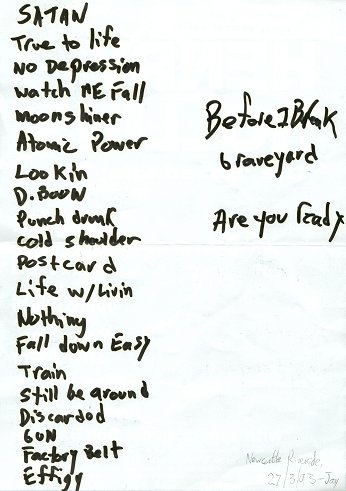 SATAN
True to life
No Depression
Watch ME Fall
Moonshiner
Atomic Power
Lookin
D. BOON
Punch drunk
Cold shoulder
Postcard
Life w/Livin
Nothing
Fall down Easy
Train
Still be around
Discarded
GUN
Factory Belt
Effigy
Before I Break
Graveyard
Are you Ready
Newcastle Riverside
27/3/93 - Jay